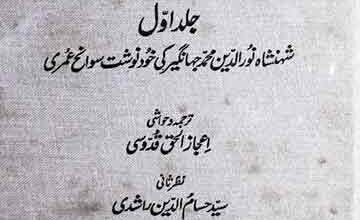 جلد اوّل
شہنشاہ نورالدین محمد جہانگیر کی خود نوشت سوانح عمری
ترجمہ و حواشی
اعجاز الحق قدّوسی
نظر ثانی
سیّد حسام الدین راشدی